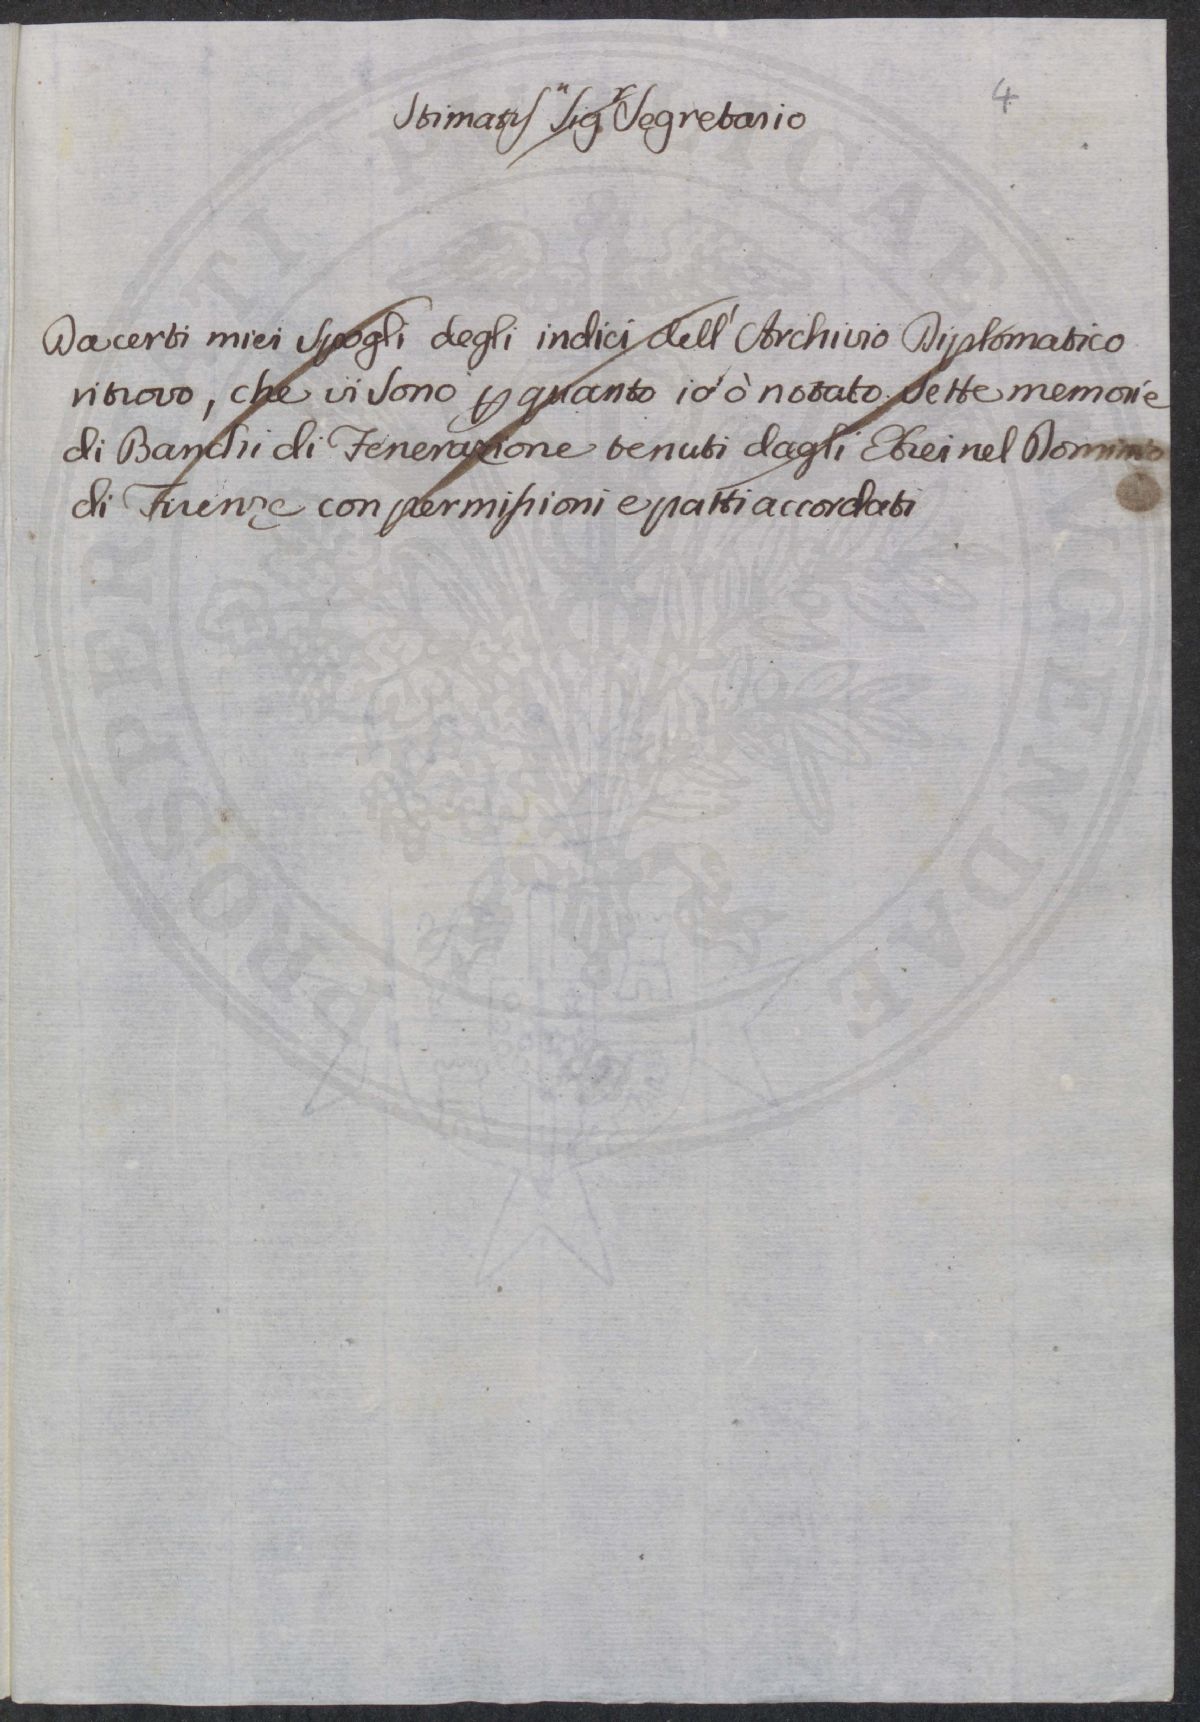 4
Stimatis.<sup>o</sup> Sig.<sup>r</sup> Segretario
Da certi miei spogli degli indici dell' Archivio Diplomatico
ritrovo, che vi sono p quanto io ò notato sette memorie
di Banchi di Fenerazione tenuti dagli Ebrei nel Dominio
di Firenze con permissioni e patti accordati
PROSPERITATI PUBLICAE AUGENDAE